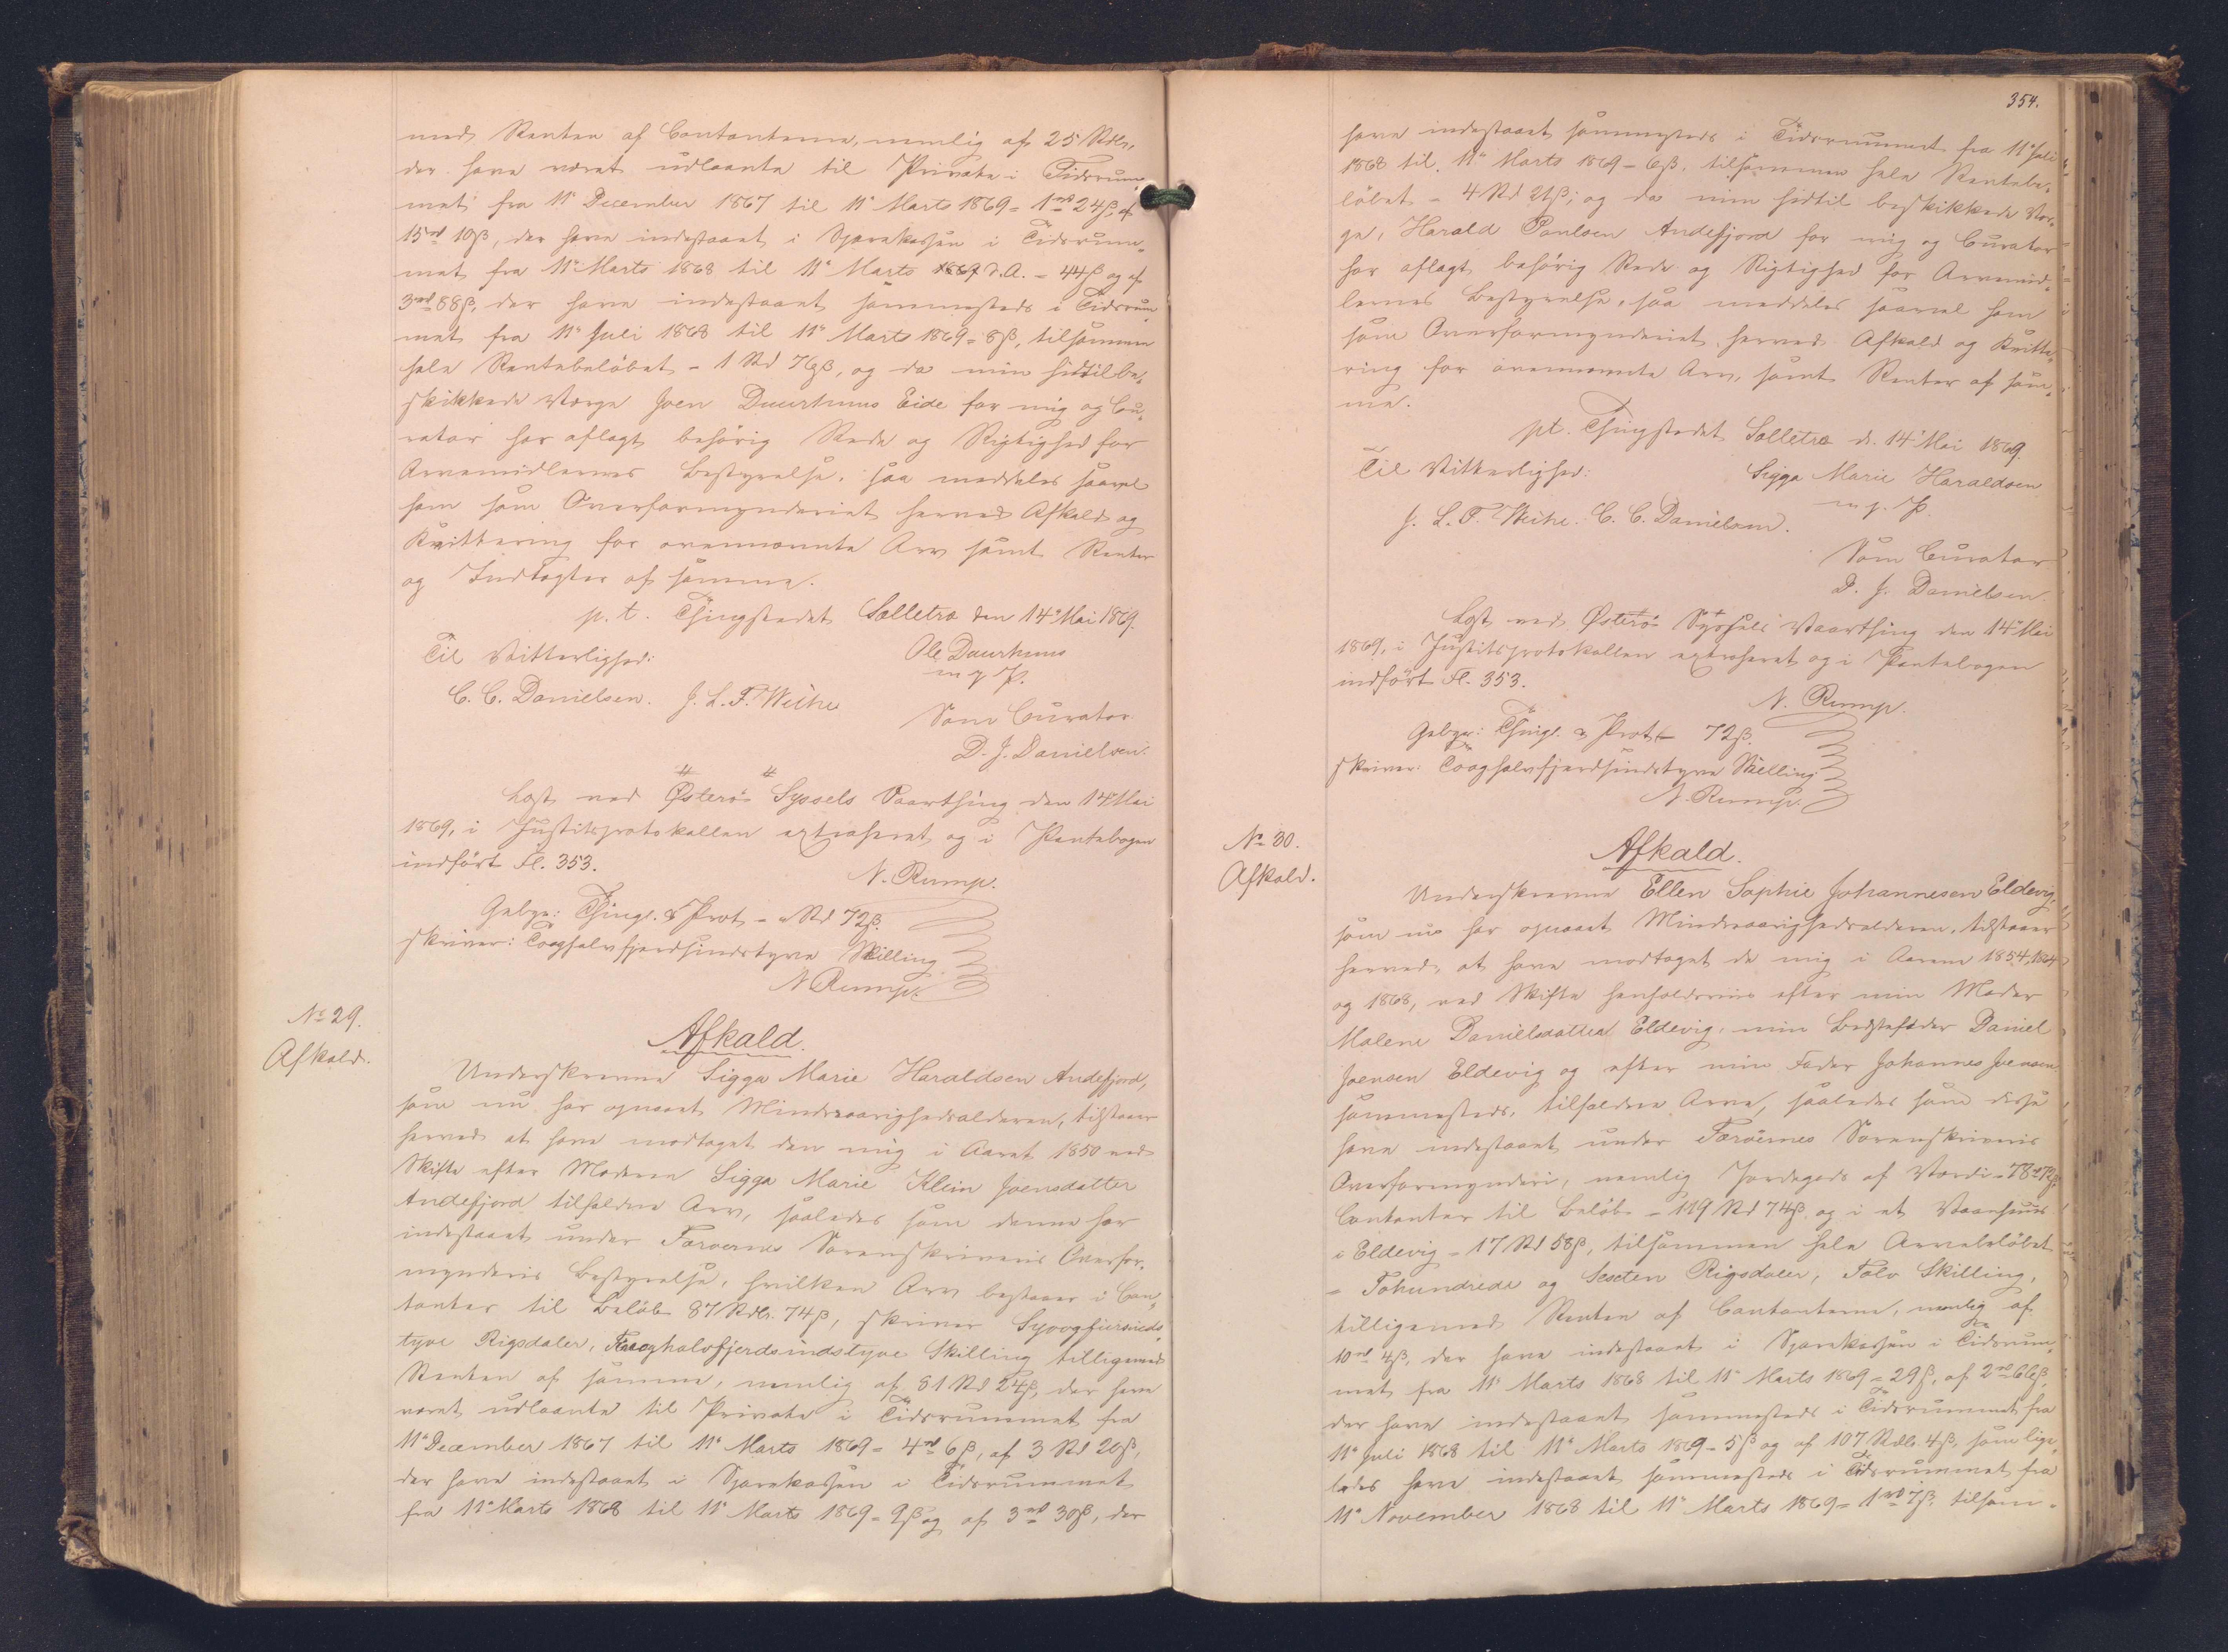 med Renten af Contanterne, nemlig af 25 Rdlr,
der have været udlaante til Private i Tidsrum¬
met fra 11te December 1867 til 11te Marts 1869 = 1rd 24ß, af
15rd 10ß, der have indestaaet i Sparekassen i Tidsrum¬
met fra 11te Marts 1868 til 11te Marts 1869 d.A. = 44ß og af
3rd 88ß, der have indestaaet sammesteds i Tidsrum¬
met fra 11te Juli 1868 til 11te Marts 1869 = 8ß, tilsammen
hele Rentebeløbet = 1 Rd 76ß, og da min hidtil be¬
skikkede Værge Joen Duurhuus Eide for mig og Cu¬
rator har aflagt behørig Rede og Rigtighed for
Arvemidlernes Bestyrelse, saa meddeles saavel
ham som Overformynderiet herved Afkald og
Kvittering for ovennævnte Arv samt Renter
og Indtægter af samme.
p. t. Thingstedet Selletræ den 14de Mai 1869.
Til Vitterlighed: Ole Duurhuus
m. f. P.
C. C. Danielsen. J. L. F. Weihe
Som Curator
D. J. Danielsen.
Læst ved Østerø Syssels Vaarthing den 14de Mai
1869, i Justitsprotokollen extraheret og i Pantebogen
indført Fl. 353.
N. Rump.
Gebyr: Thingl. & Prot = " Rd 72ß.
skriver: Tooghalvfjerdsindstyve Skilling
N. Rump.
No 29.
Afkald.
Afkald.
Underskrevne Sigga Marie Haraldsen Andefjord,
som nu har opnaaet Mindreaarighedsalderen, tilstaaer
herved at have modtaget den mig i Aaret 1850 ved
Skifte efter Moderen Sigga Marie Klein Joensdatter
Andefjord tilfaldne Arv, saaledes som denne har
indestaaet under Færøernes Sorenskriveris Overfor¬
mynderis Bestyrelse, hvilken Arv bestaaer i Con¬
tanter til Beløb 87 Rdlr. 74ß, skriver Syvogfiirsinds¬
tyve Rigsdaler, Fireoghalvfjerdsindstyve Skilling tilligemed
Renten af samme, nemlig af 81 Rd 24ß, der have
været udlaante til Private i Tidsrummet fra
11te December 1867 til 11te Marts 1869 = 4rd 6ß, af 3 Rd 20ß,
der have indestaaet i Sparekassen i Tidsrummet
fra 11te Marts 1868 til 11te Marts 1869 = 9ß og af 3rd 30ß, der
354.
have indestaaet sammesteds i Tidsrummet fra 11te Juli
1868 til 11te Marts 1869 = 6ß, tilsammen hele Rentebe¬
løbet = 4 Rd 21ß; og da min hidtil beskikkede Vær¬
ge, Harald Poulsen Andefjord for mig og Curator
har aflagt behørig Rede og Rigtighed for Arvemid¬
lernes Bestyrelse, saa meddeles saavel ham
som Overformynderiet herved Afkald og Kvitte¬
ring for ovennævnte Arv, samt Renter af sam¬
me.
pt. Thingstedet Selletræ d. 14de Mai 1869.
Til Vitterlighed: Sigga Marie Haraldsen
m. f. P.
J. L. F. Weihe. C. C. Danielsen.
Som Curator
D. J. Danielsen.
Læst ved Østerø Syssels Vaarthing den 14de Mai
1869, i Justitsprotokollen extraheret og i Pantebogen
indført Fl. 353.
N. Rump.
Gebyr: Thingl. & Prot = 72ß.
skriver: Tooghalvfjerdsindstyve Skilling
N. Rump.
No 30.
Afkald.
Afkald.
Underskrevne Ellen Sophie Johannesen Eldevig,
som nu har opnaaet Mindreaarighedsalderen, tilstaaer
herved, at have modtaget de mig i Aarene 1854, 1864
og 1868, ved Skifte henholdsviis efter min Moder
Malene Danielsdatter Eldevig, min Bedstefader Daniel
Joensen Eldevig og efter min Fader Johannes Joensen
sammesteds, tilfaldne Arve, saaledes som disse
have indestaaet under Færøernes Sorenskriveris
Overformynderi, nemlig Jordegods af Værdi = 78rd 72ß,
Contanter til Beløb = 119 Rd 74ß og i et Vaanhuus
i Eldevig = 17 Rd 58ß, tilsammen hele Arvebeløbet
= Tohundrede og Sexten Rigsdaler, Tolv Skilling,
tilligemed Renten af Contanterne, nemlig af
10rd 4ß, der have indestaaet i Sparekassen i Tidsrum¬
met fra 11te Marts 1868 til 11te Marts 1869 = 29ß, af 2rd 66ß,
der have indestaaet sammesteds i Tidsrummet fra
11te Juli 1868 til 11te Marts 1869 = 5ß og af 107 Rdlr. 4ß, som lige¬
ledes have indestaaet sammesteds i Tidsrummet fra
11te November 1868 til 11te Marts 1869 = 1rd 7ß, tilsam¬